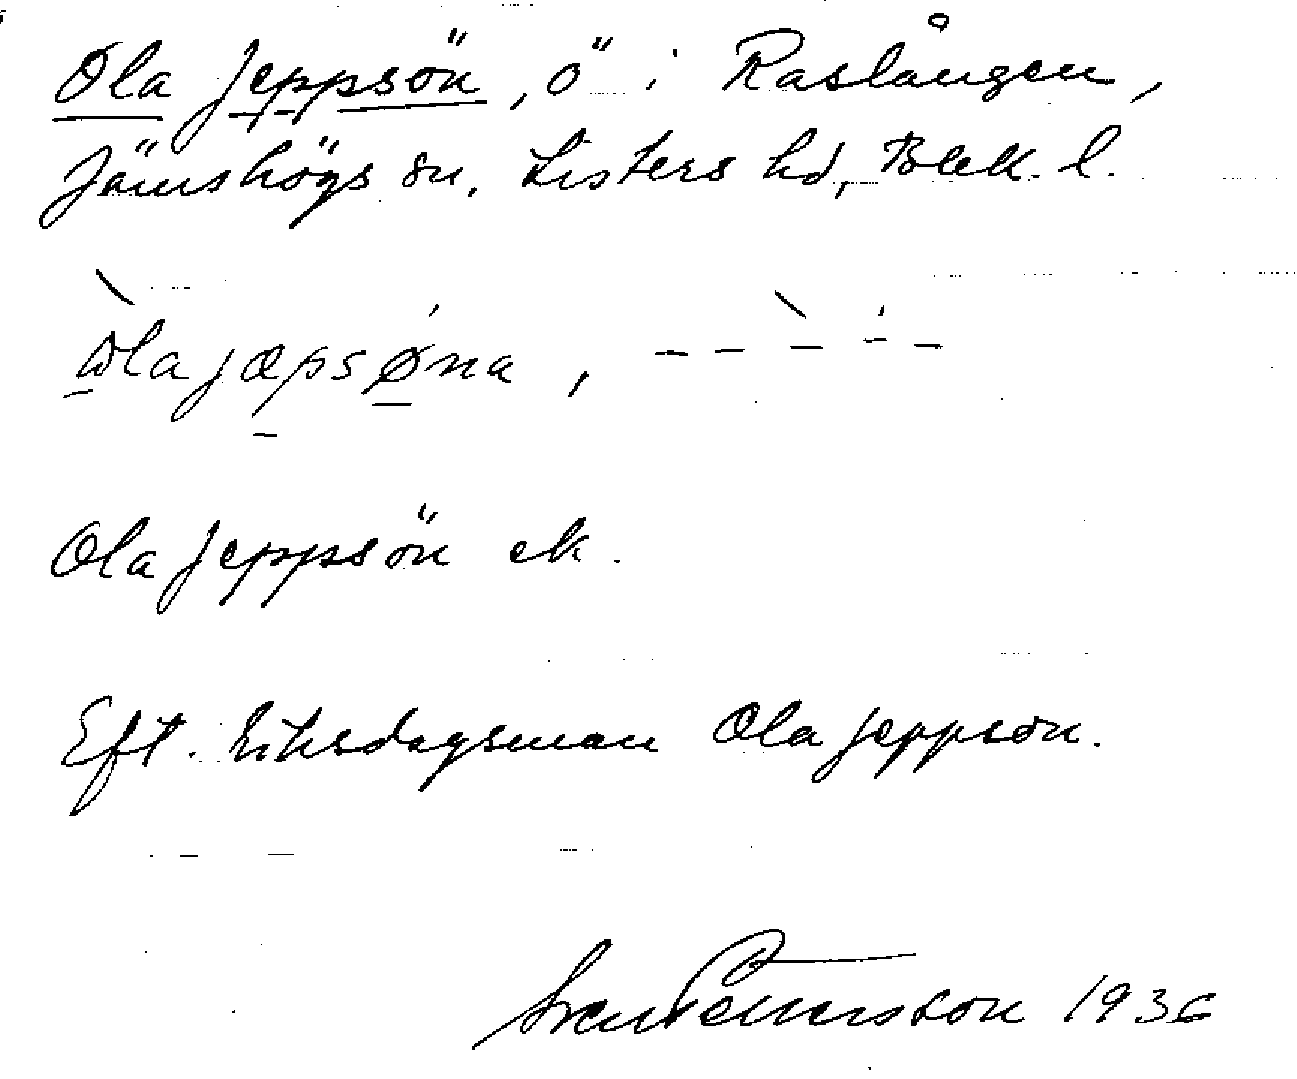 Ola Jeppsön, ö i Raslången,
Jämshögs sn, Listers hd, Blek. l.
ωlajæpsøna, – – – – –
Ola Jeppsön ek.
Eft. riksdagsman Ola Jeppson.
Sven Pettersson 1936